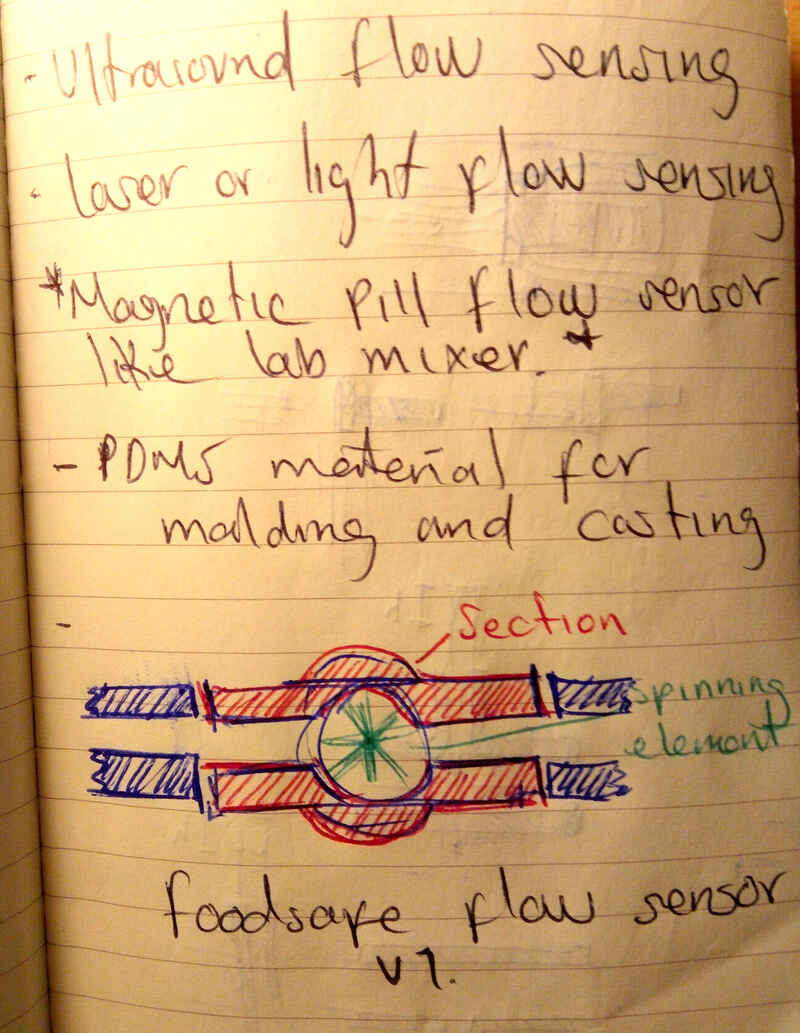 - Ultrasound flow sensing
- laser or light flow sensing
*Magnetic pill flow sensor
like lab mixer.*
- PDMS material for
molding and casting
-
section
spinning
element
foodsafe flow sensor
v1.